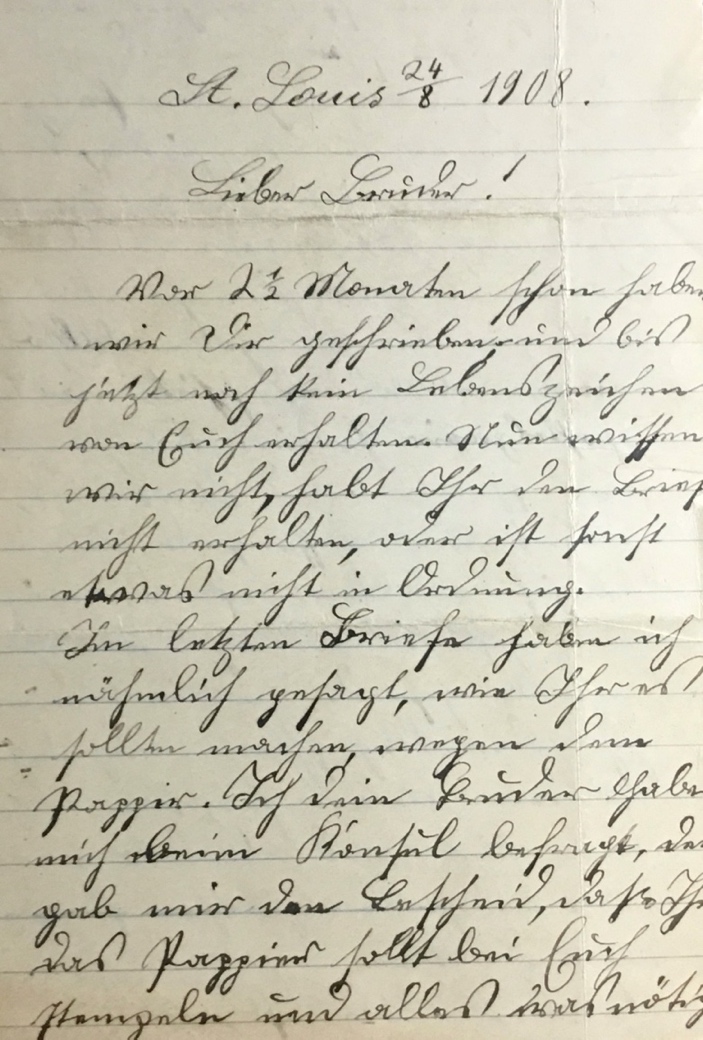 St. Louis 24/8 1908.
Lieber Bruder!
Vor 2 1/2 Monaten schon haben
wir Dir geschrieben, und bis
jetzt noch kein Lebenszeichen
von Euch erhalten. Nun wissen
wir nicht, habt Ihr den Brief
nicht erhalten, oder ist sonst
etwas nicht in Ordnung.
Im letzten Briefe habe ich
nähmlich gesagt, wie Ihr es
sollten machen, wegen dem
Pappir. Ich dein Bruder habe
mich beim Konsul befragt, der
gab mir den Bescheid, daß Ihr
das Pappier sollt bei Euch
stempeln und alles was nötig